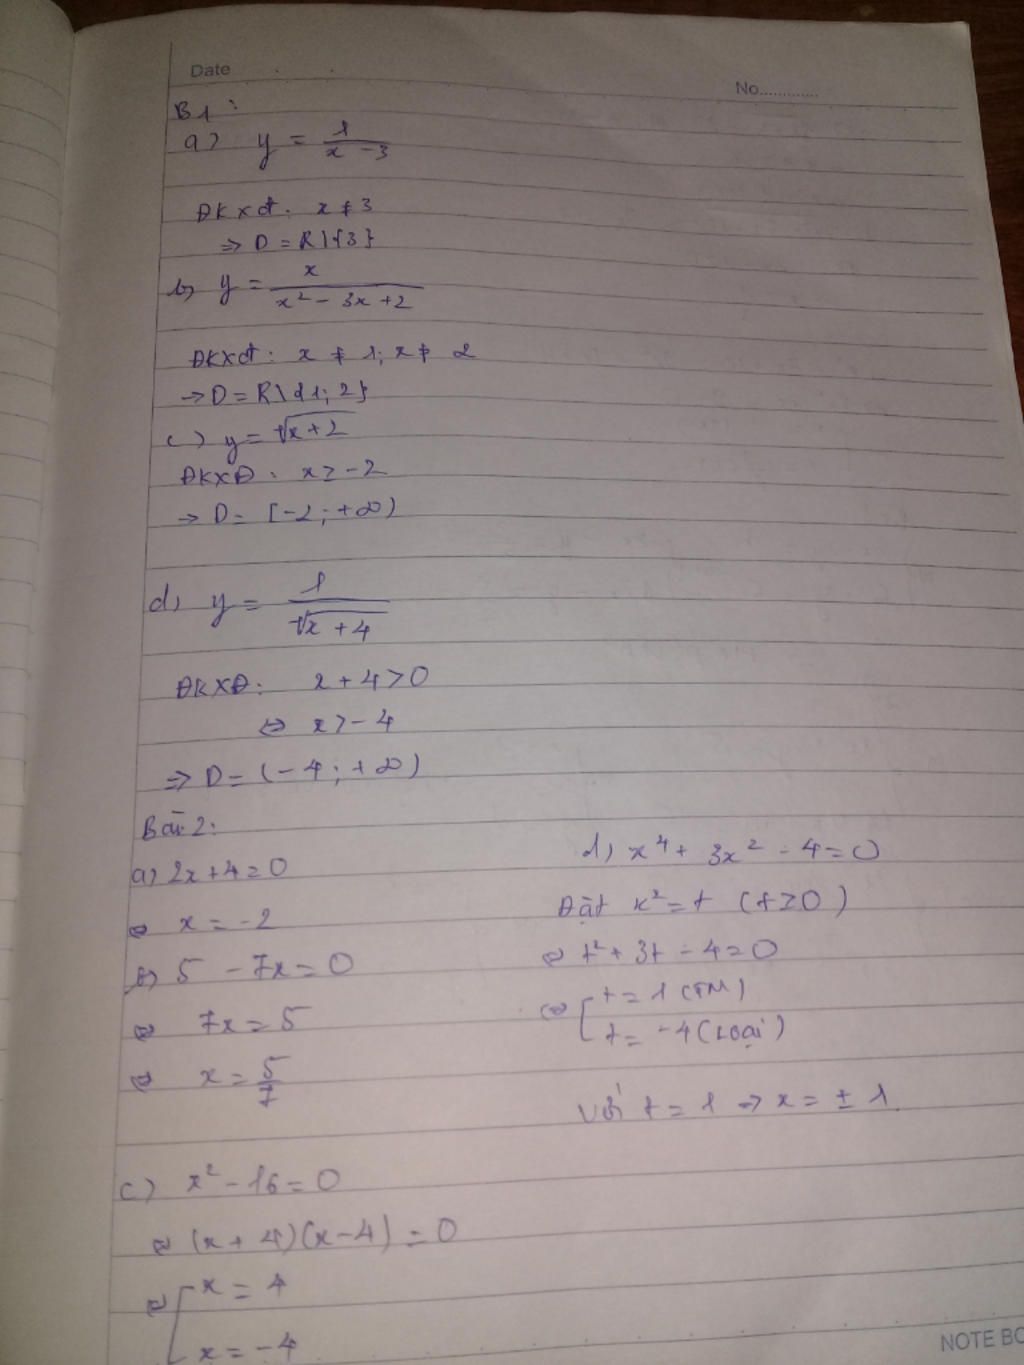 Date . .
No.............
B1:
a) y = 1/(x - 3)
ĐKxđ: x ≠ 3
=> D = R\{3}
b) y = x/(x² - 3x + 2)
ĐKxđ: x ≠ 1; x ≠ 2
-> D = R\{1; 2}
c) y = √(x+2)
ĐKXĐ: x ≥ -2
-> D = [-2; +∞)
d) y = 1/√(x+4)
ĐKXĐ: x + 4 > 0
⇔ x > -4
=> D = (-4; +∞)
Bài 2:
a) 2x + 4 = 0
⇔ x = -2
b) 5 - 7x = 0
⇔ 7x = 5
⇔ x = 5/7
c) x² - 16 = 0
⇔ (x + 4)(x - 4) = 0
⇔ [ x = 4
x = -4
d) x⁴ + 3x² - 4 = 0
Đặt x² = t (t ≥ 0)
⇔ t² + 3t - 4 = 0
⇔ [ t = 1 (TM)
t = -4 (Loại)
Với t = 1 -> x = ± 1
NOTE BO